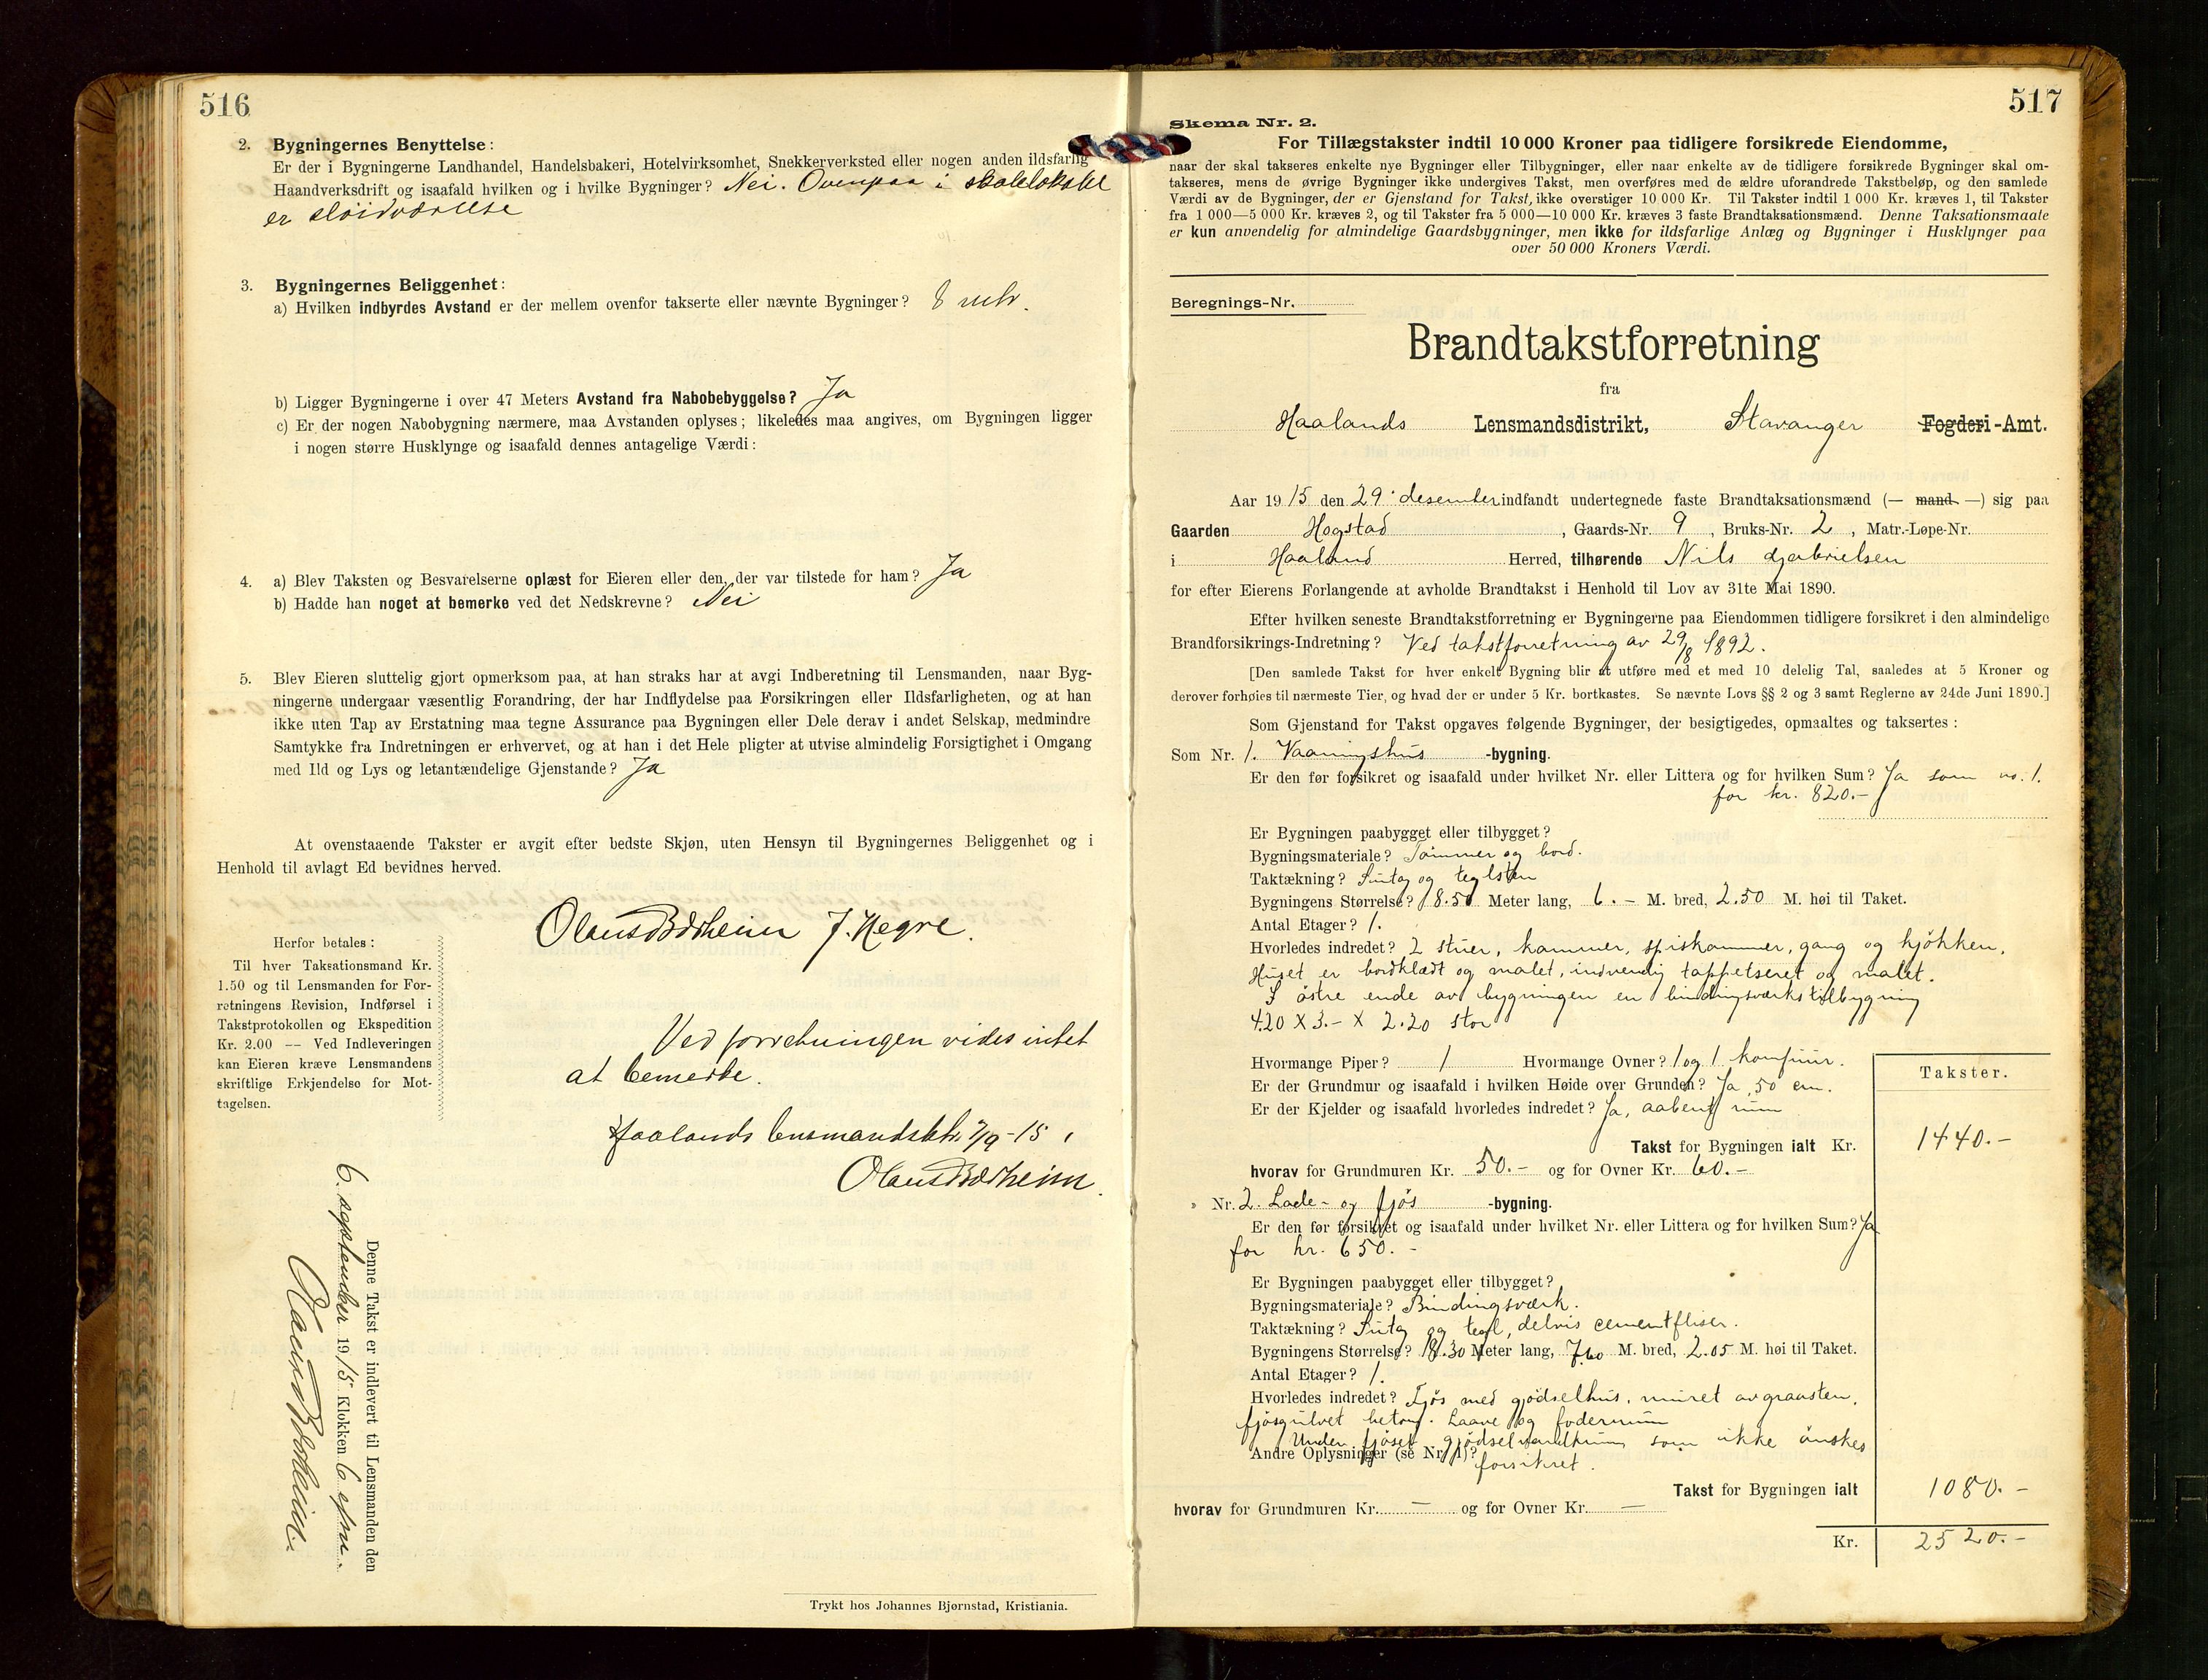 516
2. Bygningernes Benyttelse:
Er der i Bygningerne Landhandel, Handelsbakeri, Hotelvirksomhet, Snekkerverksted eller nogen anden ildsfarlig
Haandverksdrift og isaafald hvilken og i hvilke Bygninger? Nei. Ovenpaa i skolelokalet
er sløidværelse
3. Bygningernes Beliggenhet:
a) Hvilken indbyrdes Avstand er der mellem ovenfor takserte eller nævnte Bygninger? 8 mtr.
b) Ligger Bygningerne i over 47 Meters Avstand fra Nabobebyggelse? Ja
c) Er der nogen Nabobygning nærmere, maa Avstanden oplyses; likeledes maa angives, om Bygningen ligger
i nogen større Husklynge og isaafald dennes antagelige Værdi:
4. a) Blev Taksten og Besvarelserne oplæst for Eieren eller den, der var tilstede for ham? Ja
b) Hadde han noget at bemerke ved det Nedskrevne? Nei
5. Blev Eieren sluttelig gjort opmerksom paa, at han straks har at avgi Indberetning til Lensmanden, naar Byg-
ningerne undergaar væsentlig Forandring, der har Indflydelse paa Forsikringen eller Ildsfarligheten, og at han
ikke uten Tap av Erstatning maa tegne Assurance paa Bygningen eller Dele derav i andet Selskap, medmindre
Samtykke fra Indretningen er erhvervet, og at han i det Hele pligter at utvise almindelig Forsigtighet i Omgang
med Ild og Lys og letantændelige Gjenstande? Ja
At ovenstaaende Takster er avgit efter bedste Skjøn, uten Hensyn til Bygningernes Beliggenhet og i
Henhold til avlagt Ed bevidnes herved.
J. Hegre.
Herfor betales:
Til hver Taksationsmand Kr.
1.50 og til Lensmanden for For-
retningens Revision, Indførsel i
Takstprotokollen og Ekspedition
Kr. 2.00 — Ved Indleveringen
kan Eieren kræve Lensmandens
skriftlige Erkjendelse for Mot-
tagelsen.
Ved forretningen vides intet
at bemerke.
Haalands lensmandsktr. 7/9-15
Denne Takst er indlevert til Lensmanden den
6. september 1915 Klokken 6 efm.
Trykt hos Johannes Bjørnstad, Kristiania.
517
Skema Nr. 2.
For Tillægstakster indtil 10 000 Kroner paa tidligere forsikrede Eiendomme,
naar der skal takseres enkelte nye Bygninger eller Tilbygninger, eller naar enkelte av de tidligere forsikrede Bygninger skal om-
takseres, mens de øvrige Bygninger ikke undergives Takst, men overføres med de ældre uforandrede Takstbeløp, og den samlede
Værdi av de Bygninger, der er Gjenstand for Takst, ikke overstiger 10 000 Kr. Til Takster indtil 1 000 Kr. kræves 1, til Takster
fra 1 000—5 000 Kr. kræves 2, og til Takster fra 5 000—10 000 Kr. kræves 3 faste Brandtaksationsmænd. Denne Taksationsmaate
er kun anvendelig for almindelige Gaardsbygninger, men ikke for ildsfarlige Anlæg og Bygninger i Husklynger paa
over 50 000 Kroners Værdi.
Beregnings-Nr.
Brandtakstforretning
fra
Haalands Lensmandsdistrikt, Stavanger Fogderi-Amt.
Aar 1915 den 29. desember indfandt undertegnede faste Brandtaksationsmænd (— mand —) sig paa
Gaarden Hogstad, Gaards-Nr. 9, Bruks-Nr. 2, Matr.-Løpe-Nr.
i Haaland Herred, tilhørende Nils Gabrielsen
for efter Eierens Forlangende at avholde Brandtakst i Henhold til Lov av 31te Mai 1890.
Efter hvilken seneste Brandtakstforretning er Bygningerne paa Eiendommen tidligere forsikret i den almindelige
Brandforsikrings-Indretning? Ved takstforretning av 29/8 1892.
[Den samlede Takst for hver enkelt Bygning blir at utføre med et med 10 delelig Tal, saaledes at 5 Kroner og
derover forhøies til nærmeste Tier, og hvad der er under 5 Kr. bortkastes. Se nævnte Lovs §§ 2 og 3 samt Reglerne av 24de Juni 1890.]
Som Gjenstand for Takst opgaves følgende Bygninger, der besigtigedes, opmaaltes og taksertes:
Som Nr. 1. Vaaningshus -bygning.
Er den før forsikret og isaafald under hvilket Nr. eller Littera og for hvilken Sum? Ja som no. 1.
for kr. 820.-
Er Bygningen paabygget eller tilbygget?
Bygningsmateriale? Tømmer og bord.
Taktækning? Sutag og teglsten
Bygningens Størrelse? 8.50 Meter lang, 6.- M. bred, 2.50 M. høi til Taket.
Antal Etager? 1.
Hvorledes indredet? 2 stuer, kammer, spiskammer, gang og kjøkken.
Huset er bordklædt og malet, indvendig tappetseret og malet.
I østre ende av bygningen en bindingsværkstilbygning
4.20 X 3.- X 2.20 stor
Hvormange Piper? 1 Hvormange Ovner? 1 og 1 komfuur.
Er der Grundmur og isaafald i hvilken Høide over Grunden? Ja, 50 cm.
Er der Kjelder og isaafald hvorledes indredet? Ja, aabent rum
Takster.
Takst for Bygningen ialt Kr. 1440.-
hvorav for Grundmuren Kr. 50.- og for Ovner Kr. 60.-
» Nr. 2. Lade- og fjøs -bygning.
Er den før forsikret og isaafald under hvilket Nr. eller Littera og for hvilken Sum? Ja
for kr. 650.-
Er Bygningen paabygget eller tilbygget?
Bygningsmateriale? Bindingsværk.
Taktækning? Sutag og tegl, delvis cementfliser.
Bygningens Størrelse? 18.30 Meter lang, 7.60 M. bred, 2.05 M. høi til Taket.
Antal Etager? 1.
Hvorledes indredet? Fjøs med gjødselhus, muret av graasten,
fjøsgulvet betong. Laave og foderrum
Under fjøset gjødselvandkum som ikke ønskes
Andre Oplysninger (se Nr. 1)? forsikret.
Takst for Bygningen ialt 1080.-
hvorav for Grundmuren Kr. — og for Ovner Kr. —
Kr. 2520.-